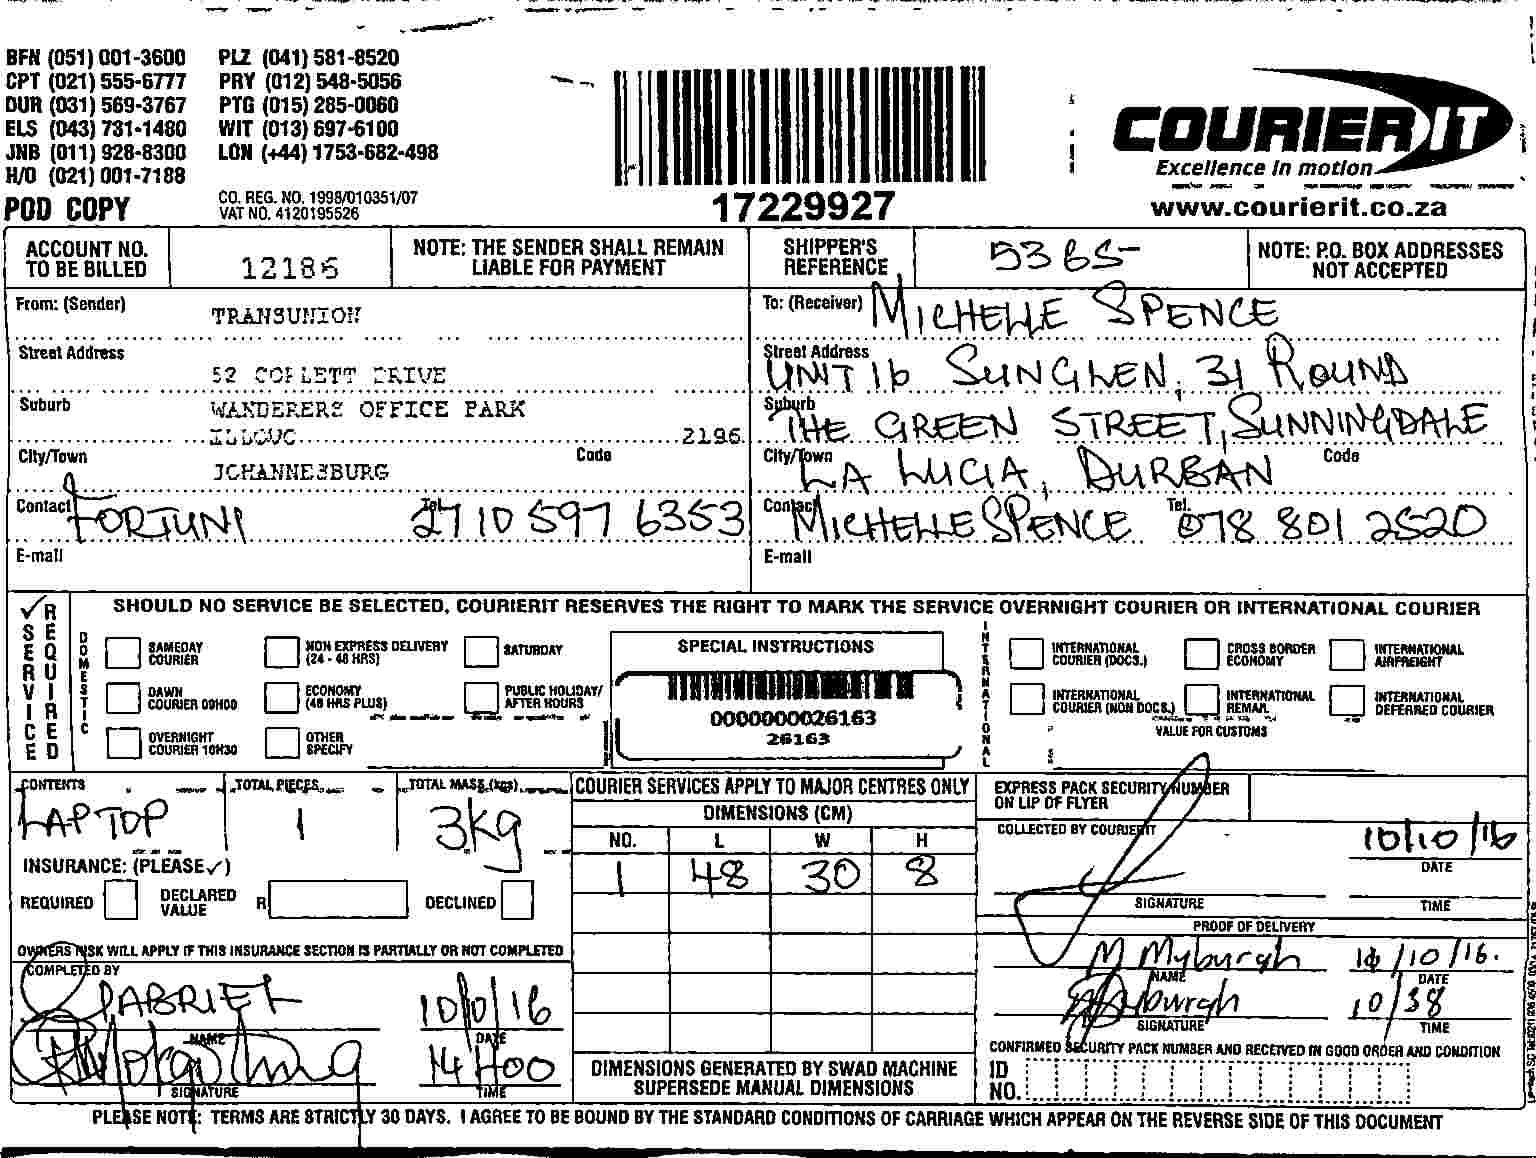 BFN (051) 001-3600 PLZ (041) 581-8520
CPT (021) 555-6777 PRY (012) 548-5056
DUR (031) 569-3767 PTG (015) 285-0060
ELS (043) 731-1480 WIT (013) 697-6100
JNB (011) 928-8300 LON (+44) 1753-682-498
H/O (021) 001-7188
POD COPY
CO. REG. NO. 1998/010351/07
VAT NO. 4120195526
17229927
COURIER IT
Excellence in motion
www.courierit.co.za
ACCOUNT NO. TO BE BILLED 12186
NOTE: THE SENDER SHALL REMAIN LIABLE FOR PAYMENT
SHIPPER'S REFERENCE 5365
NOTE: P.O. BOX ADDRESSES NOT ACCEPTED
From: (Sender) TRANSUNION
Street Address 52 CORLETT DRIVE
Suburb WANDERERS OFFICE PARK
ILLOVO 2196
City/Town JOHANNESBURG Code
Contact FORTUNI Tel. 2710 597 6353
E-mail
To: (Receiver) MICHELLE SPENCE
Street Address UNIT 16 SUNGLEN, 31 ROUND
Suburb THE GREEN STREET, SUNNINGDALE
City/Town LA LUCIA, DURBAN Code
Contact MICHELLE SPENCE Tel. 078 801 2520
E-mail
✓ SERVICE REQUIRED
SHOULD NO SERVICE BE SELECTED, COURIERIT RESERVES THE RIGHT TO MARK THE SERVICE OVERNIGHT COURIER OR INTERNATIONAL COURIER
DOMESTIC
SAMEDAY COURIER
NON EXPRESS DELIVERY (24 - 48 HRS)
SATURDAY
DAWN COURIER 09H00
ECONOMY (48 HRS PLUS)
PUBLIC HOLIDAY/ AFTER HOURS
OVERNIGHT COURIER 10H30
OTHER SPECIFY
SPECIAL INSTRUCTIONS
0000000026163
26163
INTERNATIONAL
INTERNATIONAL COURIER (DOCS.)
CROSS BORDER ECONOMY
INTERNATIONAL AIRFREIGHT
INTERNATIONAL COURIER (NON DOCS.)
INTERNATIONAL REMAIL
INTERNATIONAL DEFERRED COURIER
VALUE FOR CUSTOMS
CONTENTS LAPTOP
TOTAL PIECES 1
TOTAL MASS (kgs) 3kg
INSURANCE: (PLEASE ✓)
REQUIRED DECLARED VALUE R DECLINED
OWNERS RISK WILL APPLY IF THIS INSURANCE SECTION IS PARTIALLY OR NOT COMPLETED
COMPLETED BY
GABRIEL
NAME
10/10/16
DATE
SIGNATURE
14H00
TIME
COURIER SERVICES APPLY TO MAJOR CENTRES ONLY
DIMENSIONS (CM)
NO. L W H
1 48 30 8
DIMENSIONS GENERATED BY SWAD MACHINE SUPERSEDE MANUAL DIMENSIONS
EXPRESS PACK SECURITY NUMBER ON LIP OF FLYER
COLLECTED BY COURIERIT
10/10/16
DATE
SIGNATURE TIME
PROOF OF DELIVERY
M Myburgh
NAME
/10/16.
DATE
Myburgh
SIGNATURE
10/38
TIME
CONFIRMED SECURITY PACK NUMBER AND RECEIVED IN GOOD ORDER AND CONDITION
ID NO.
PLEASE NOTE: TERMS ARE STRICTLY 30 DAYS. I AGREE TO BE BOUND BY THE STANDARD CONDITIONS OF CARRIAGE WHICH APPEAR ON THE REVERSE SIDE OF THIS DOCUMENT